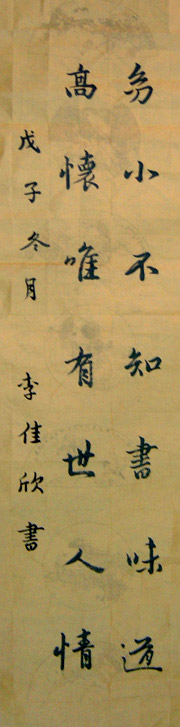 幼小不知書味道
高懷唯有世人情
戊子冬月 李佳欣書